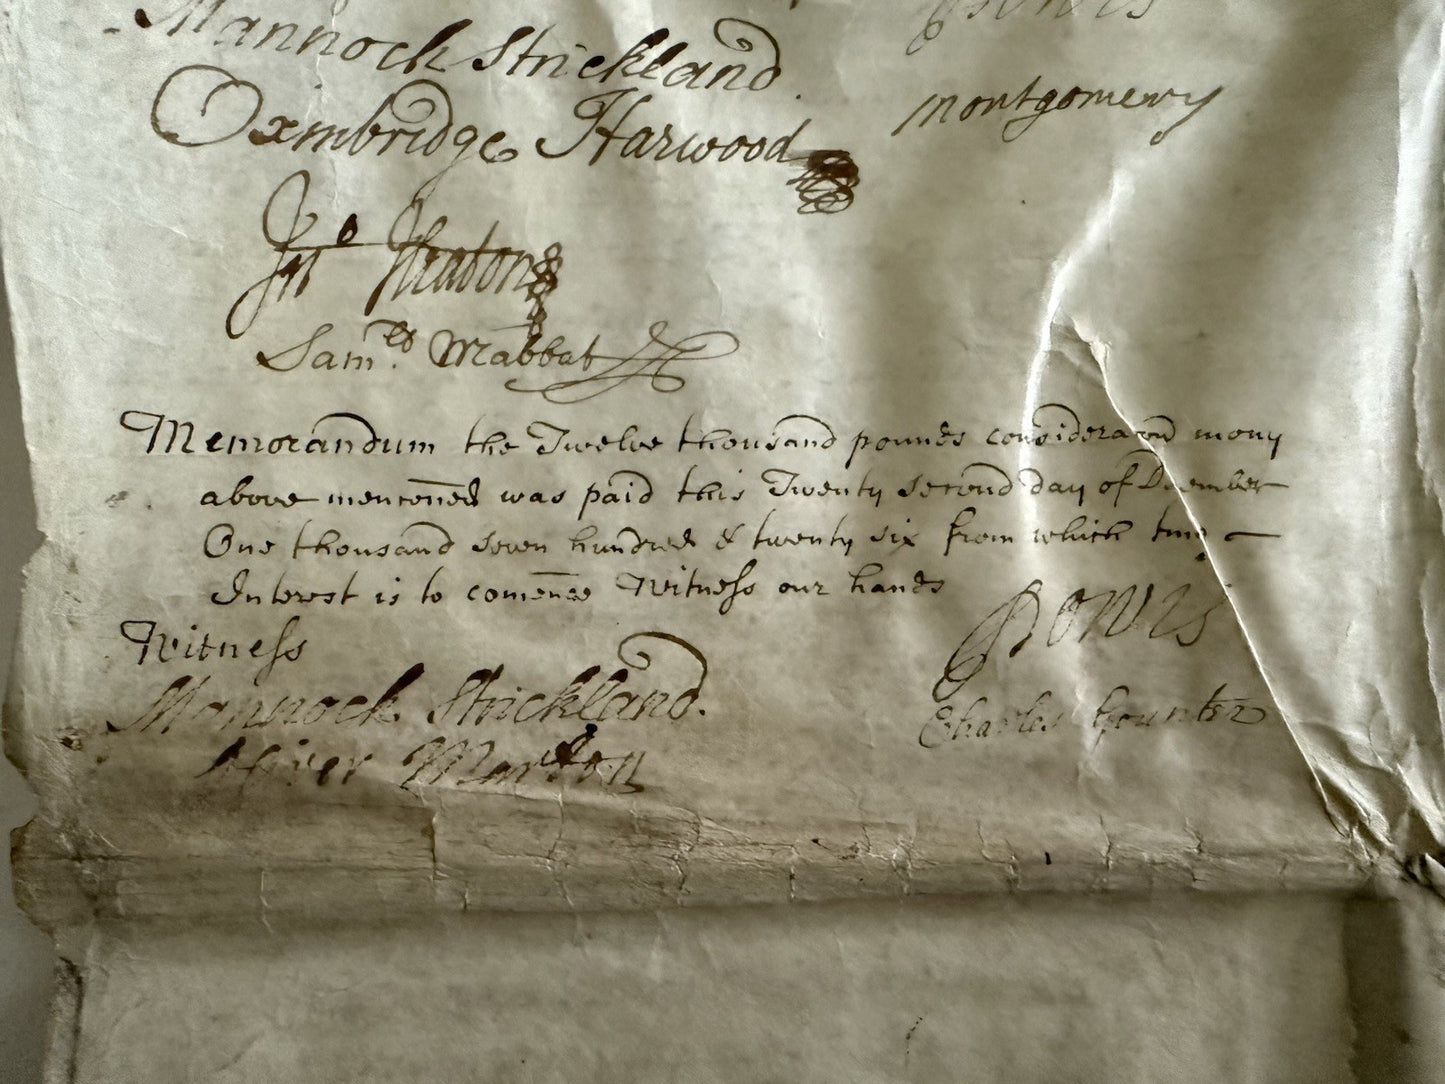 Mannock Strickland
Powis
Oxmbridge Harwood
Montgomery
Jno Heaton
Sam.ll Mabbat
Memorandum the Twelve thousand pounds consideracon mony
above menconed was paid this Twenty second day of December
One thousand seven hundred & twenty six from which time
Interest is to comence Witness our hands
Witness
Powis
Mannock Strickland.
Charles Gounter
Oliver Marton